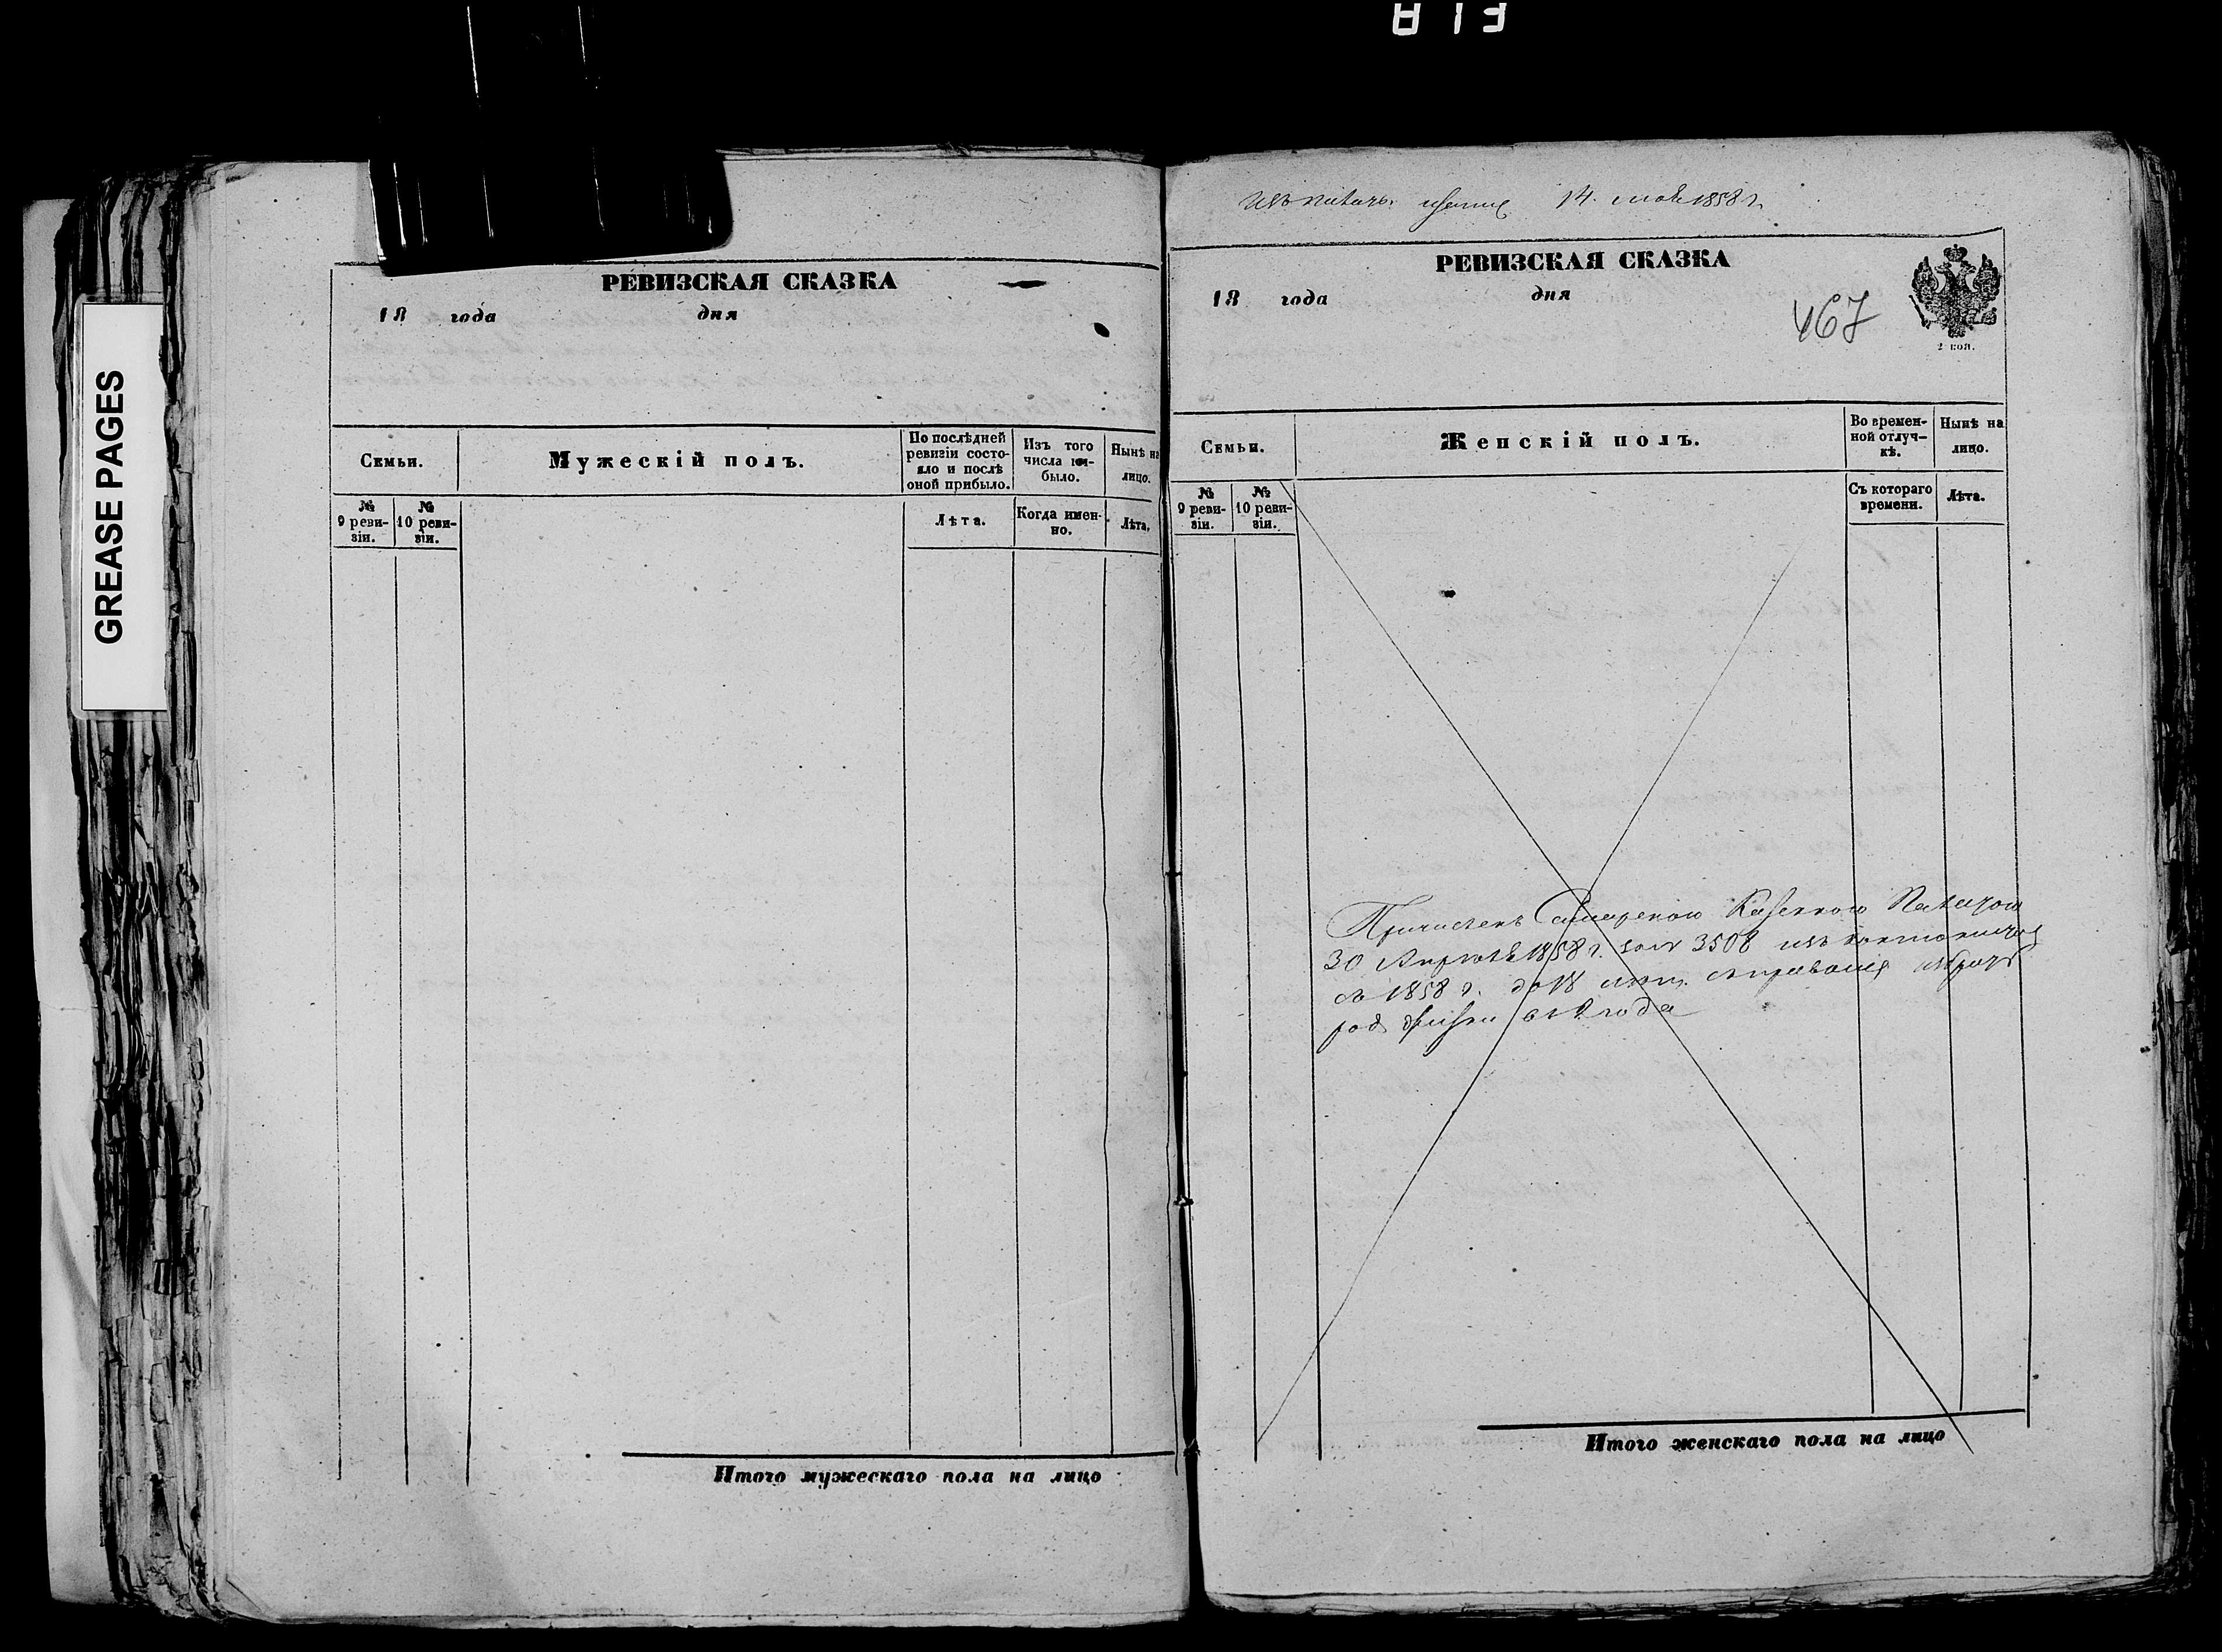 813
GREASE PAGES
РЕВИЗСКАЯ СКАЗКА
18 года дня
Семьи.
Мужескій полъ.
По послѣдней ревизіи состояло и послѣ оной прибыло.
Изъ того числа выбыло.
Нынѣ на лицо.
№ 9 ревизіи.
№ 10 ревизіи.
Лѣта.
Когда именно.
Лѣта.
Итого мужескаго пола на лицо
14 мая 1858 г.
РЕВИЗСКАЯ СКАЗКА
18 года дня
467
2 коп.
Семьи.
Женскій полъ.
Во временной отлучкѣ.
Нынѣ на лицо.
№ 9 ревизіи.
№ 10 ревизіи.
Съ котораго времени.
Лѣта.
Причисленъ Самарскою Казенною Палатою
30 Апрѣля 1858 г. за № 3508 изъ
съ 1858 г. до 18
года
Итого женскаго пола на лицо